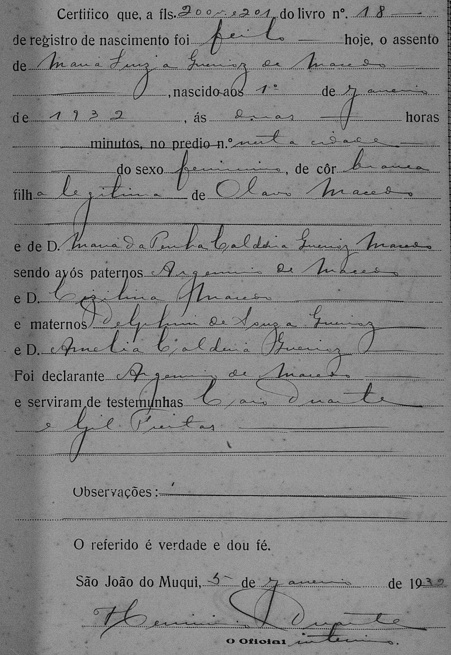 Certifico que, a fls. 200v e 201 do livro nº. 18
de registro de nascimento foi feito hoje, o assento
de Maria Luzia Queiroz de Macedo
, nascido aos 1º de janeiro
de 1932, ás duas horas
minutos, no predio n.º nesta cidade
do sexo feminino, de côr branca
filha legitima de Olavo Macedo
e de D. Maria da Penha Caldeira Queiroz Macedo
sendo avós paternos Argemiro de Macedo
e D. Macedo
e maternos de Souza Queiroz
e D. Amelia Caldeira Queiroz
Foi declarante Argemiro de Macedo
e serviram de testemunhas Caio Duarte
e Gil Freitas
Observações:
O referido é verdade e dou fé.
São João do Muqui, 5 de janeiro de 1932
Duarte
O Oficial interino.